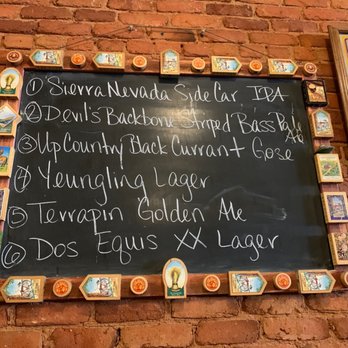 ① Sierra Nevada Side Car IPA
② Devil's Backbone Striped Bass Pale Ale
③ Up Country Black Currant Gose
④ Yeungling Lager
⑤ Terrapin Golden Ale
⑥ Dos Equis XX Lager